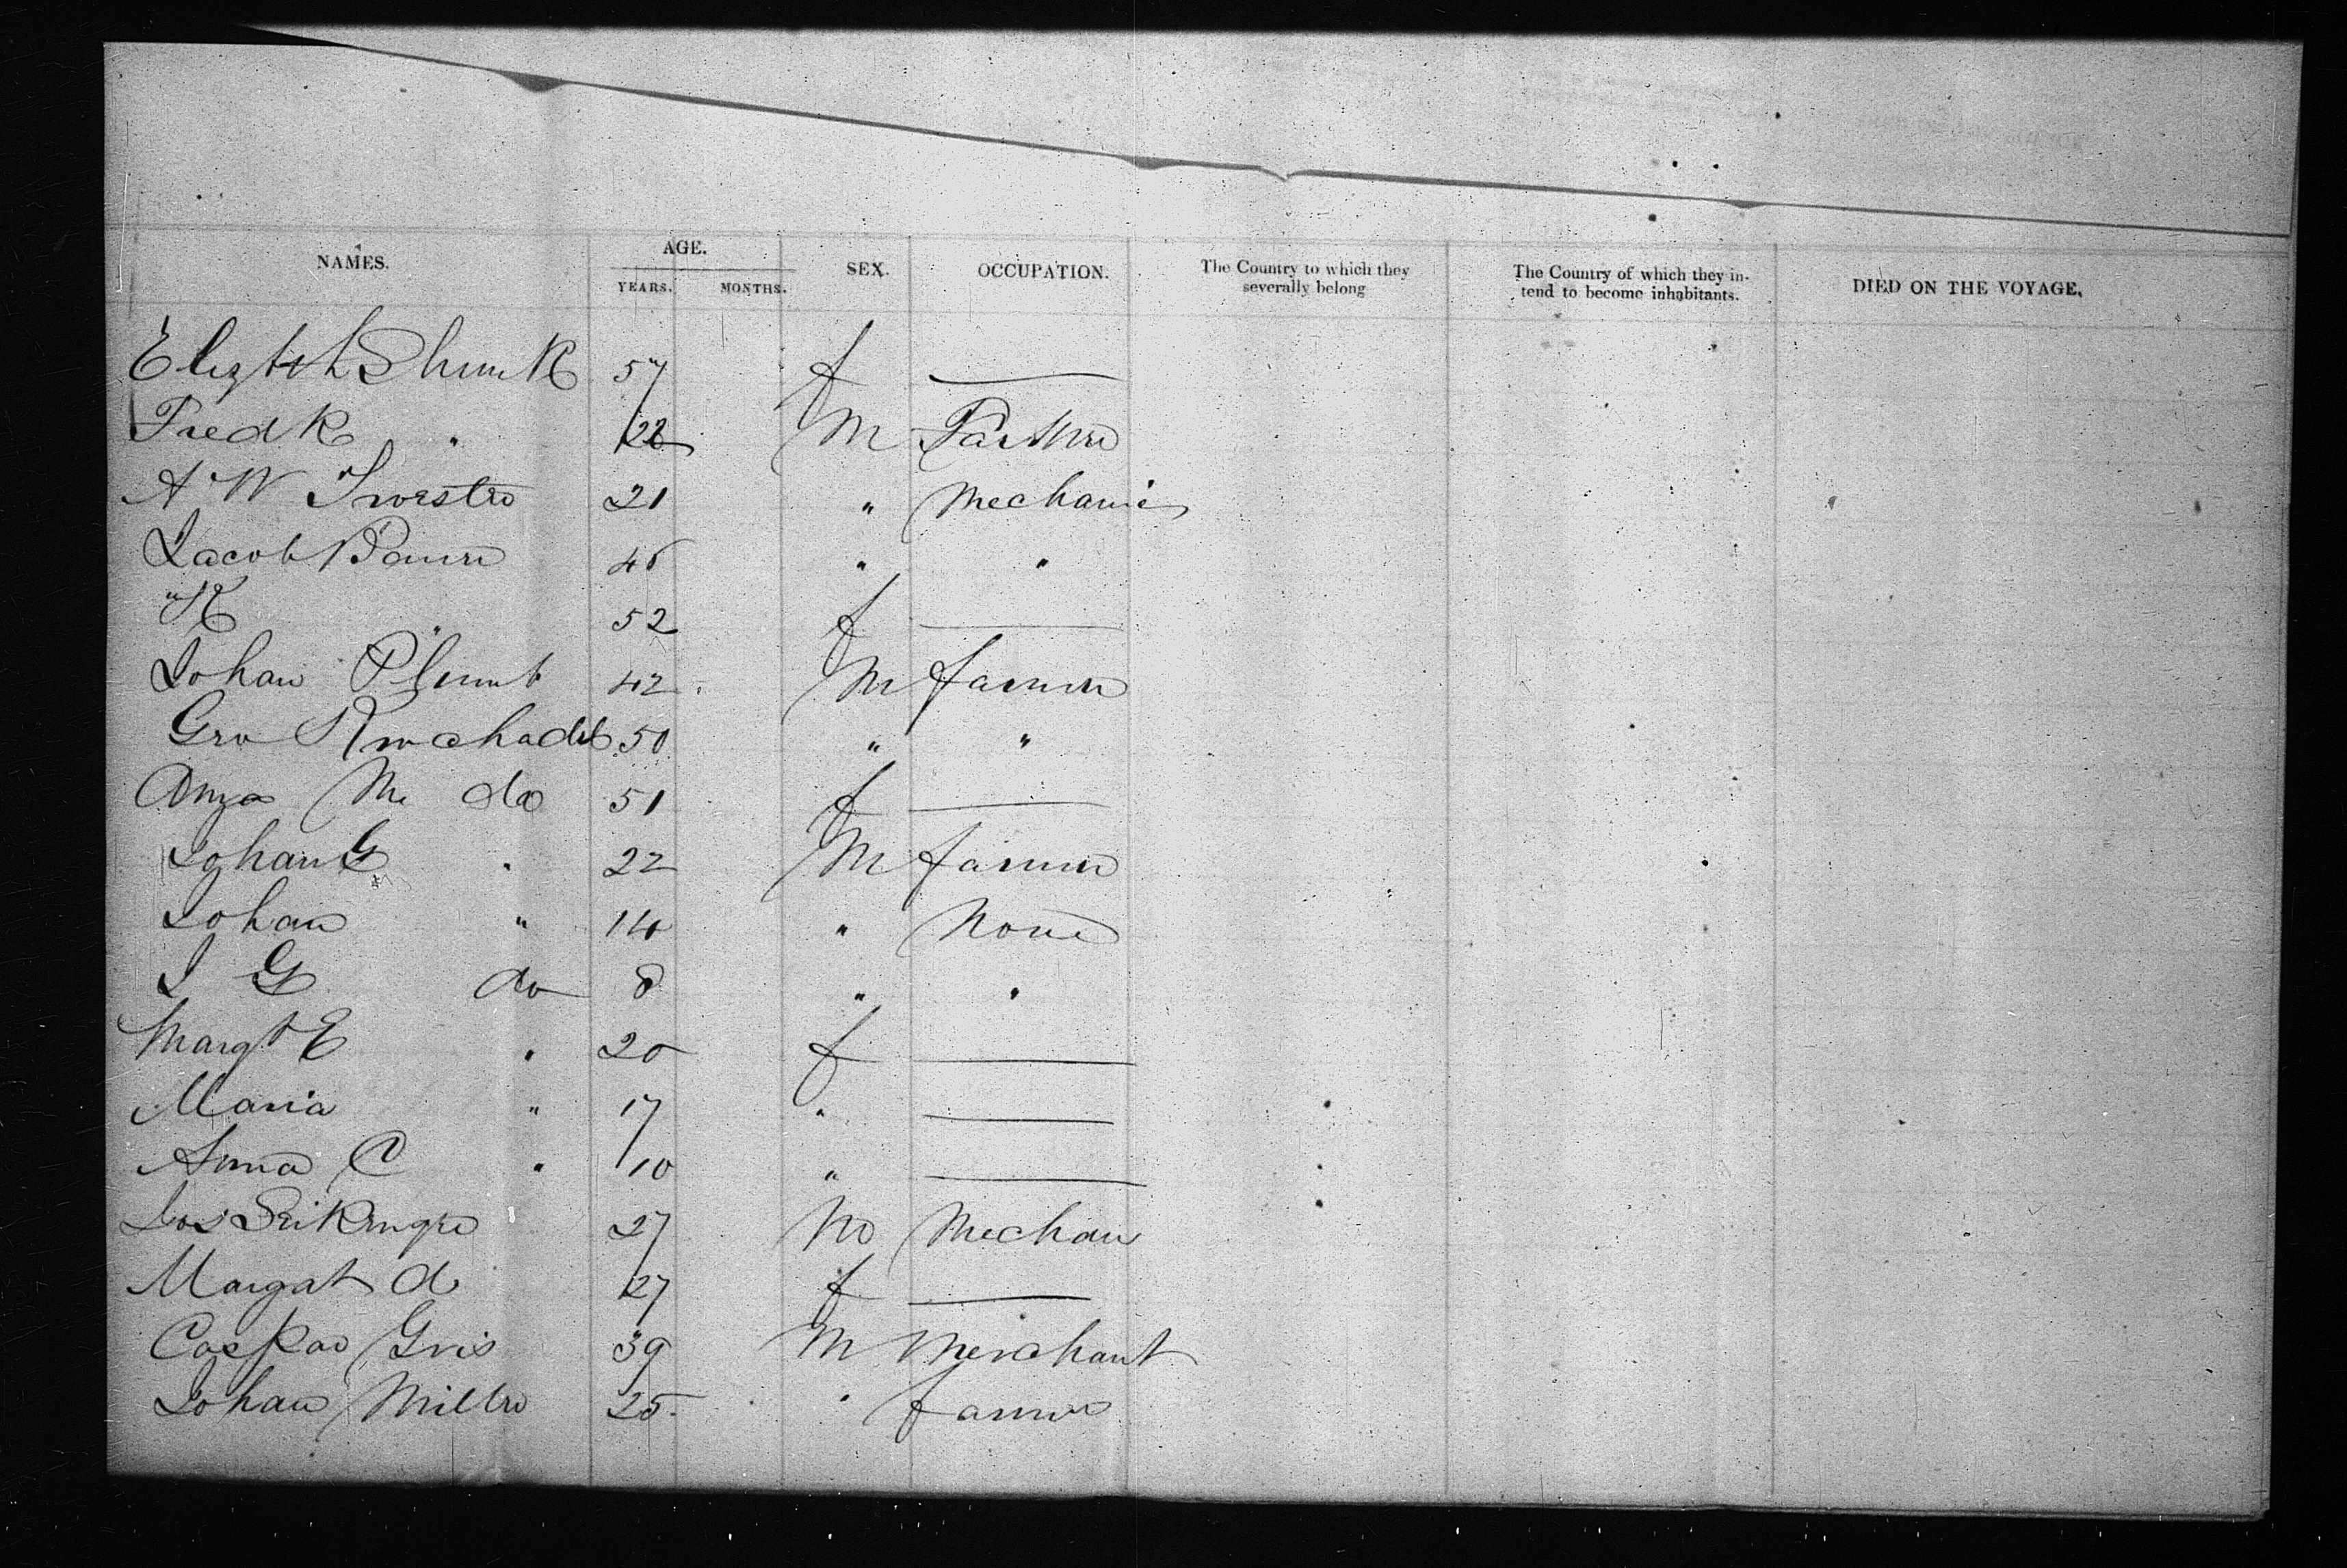 NAMES. AGE. SEX. OCCUPATION. The Country to which they severally belong The Country of which they in- tend to become inhabitants. DIED ON THE VOYAGE.
YEARS. MONTHS.
Elizbth Shunk 57 f —
Fredk " 22 M
A W 21 " Mechanic
Jacob Baurr 45 " "
"K " 52 f —
Johan Plumb 42 M farmer
Geo 50 " "
M do 51 f —
Johan G " 22 M farmer
Johan " 14 " None
J G do 8 " "
Margt E " 20 f —
Maria " 17 " —
Anna C " 10 " —
Jos 27 M Mechan
Margat d 27 f —
Caspar Gris 39 M Merchant
Johan Miller 25 " farmer